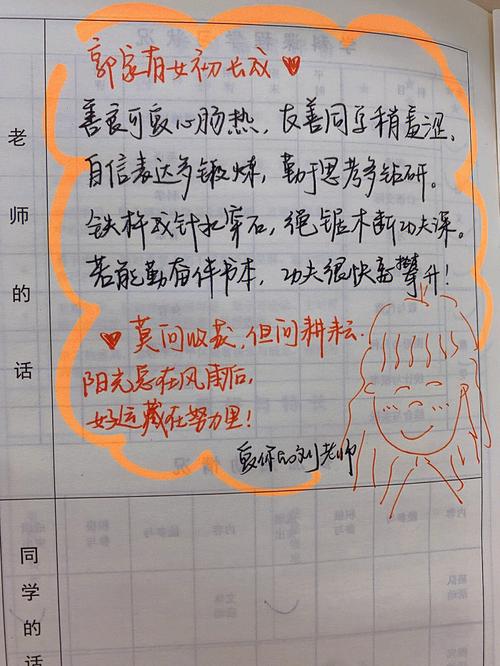 老师的话
郭家有女初长成
善良可爱心肠热，友善同学稍羞涩、
自信表达多锻炼，勤于思考多钻研。
铁杵成针水穿石，绳锯木断功夫深。
若能勤奋伴书本，功夫很快高攀升！
莫问收获，但问耕耘.
阳光总在风雨后，
好运藏在努力里！
爱你的刘老师
同学的话